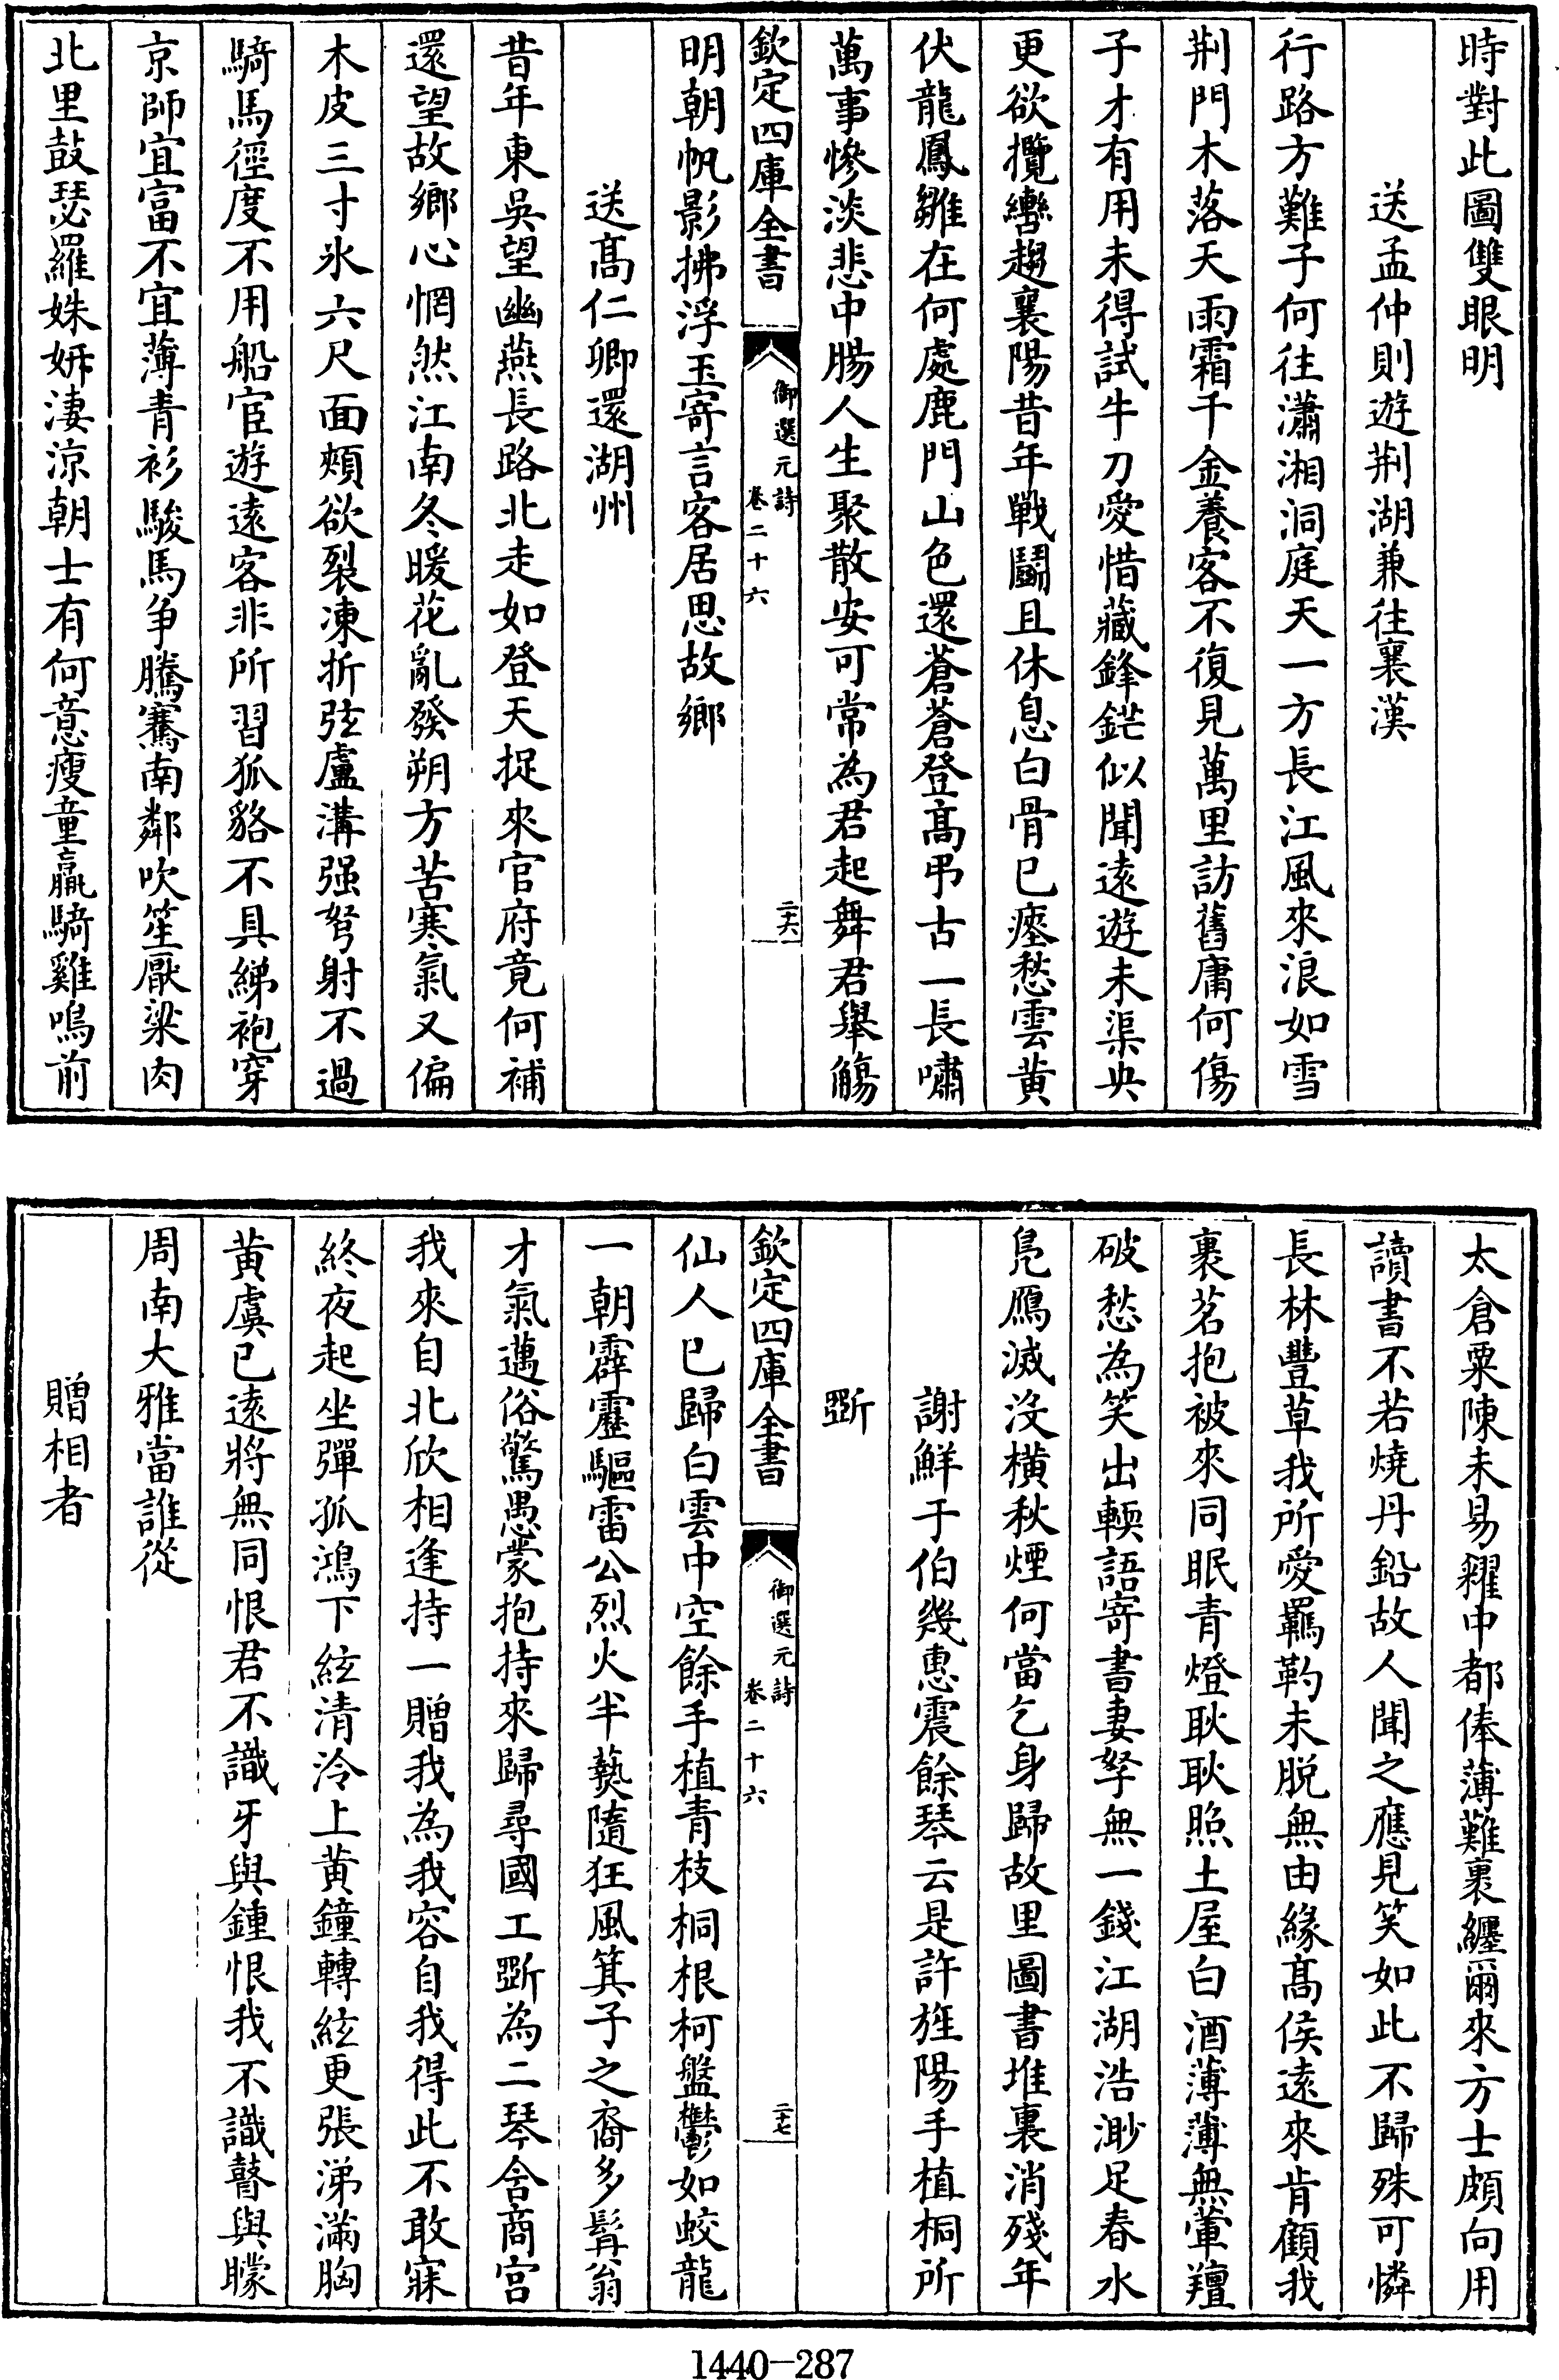 時對此圖雙眼明
送孟仲則遊荆湖兼往襄漢
行路方難子何往瀟湘洞庭天一方長江風來浪如雪
荆門木落天雨霜千金養客不復見萬里訪舊庸何傷
子才有用未得試牛刀愛惜藏鋒鋩似聞遠遊未渠央
更欲攬轡趨襄陽昔年戰鬭且休息白骨已瘞愁雲黄
伏龍鳳雛在何處鹿門山色還蒼蒼登髙弔古一長嘯
萬事慘淡悲中腸人生聚散安可常為君起舞君舉觴
欽定四庫全書
御選元詩
卷二十六
二十六
明朝帆影拂浮玉寄言客居思故鄉
送髙仁卿還湖州
昔年東吳望幽燕長路北走如登天捉來官府竟何補
還望故鄉心惘然江南冬暖花亂發朔方苦寒氣又偏
木皮三寸氷六尺面頰欲裂凍折弦盧溝强弩射不過
騎馬徑度不用船宦遊遠客非所習狐貉不具綈袍穿
京師宜富不宜薄青衫駿馬争騰騫南鄰吹笙厭粱肉
北里鼓瑟羅姝妍淒涼朝士有何意瘦童羸騎雞鳴前
太倉粟陳未易糴中都俸薄難裹纏爾來方士頗向用
讀書不若燒丹鉛故人聞之應見笑如此不歸殊可憐
長林豐草我所愛羈靮未脱無由緣髙侯遠來肯顧我
裹茗抱被來同眠青燈耿耿照土屋白酒薄薄無葷羶
破愁為笑出輭語寄書妻孥無一錢江湖浩渺足春水
鳬鴈滅没横秋煙何當乞身歸故里圖書堆裏消殘年
謝鮮于伯幾惠震餘琴云是許旌陽手植桐所
斲
欽定四庫全書
御選元詩
卷二十六
二十七
仙人已歸白雲中空餘手植青枝桐根柯盤鬱如蛟龍
一朝霹靂驅雷公烈火半爇隨狂風箕子之裔多髯翁
才氣邁俗驚愚蒙抱持來歸尋國工斲為二琴含商宫
我來自北欣相逢持一贈我為我容自我得此不敢寐
終夜起坐彈孤鴻下絃清泠上黄鐘轉絃更張涕滿胸
黄虞已遠將無同恨君不識牙與鍾恨我不識瞽與矇
周南大雅當誰從
贈相者
1440—287